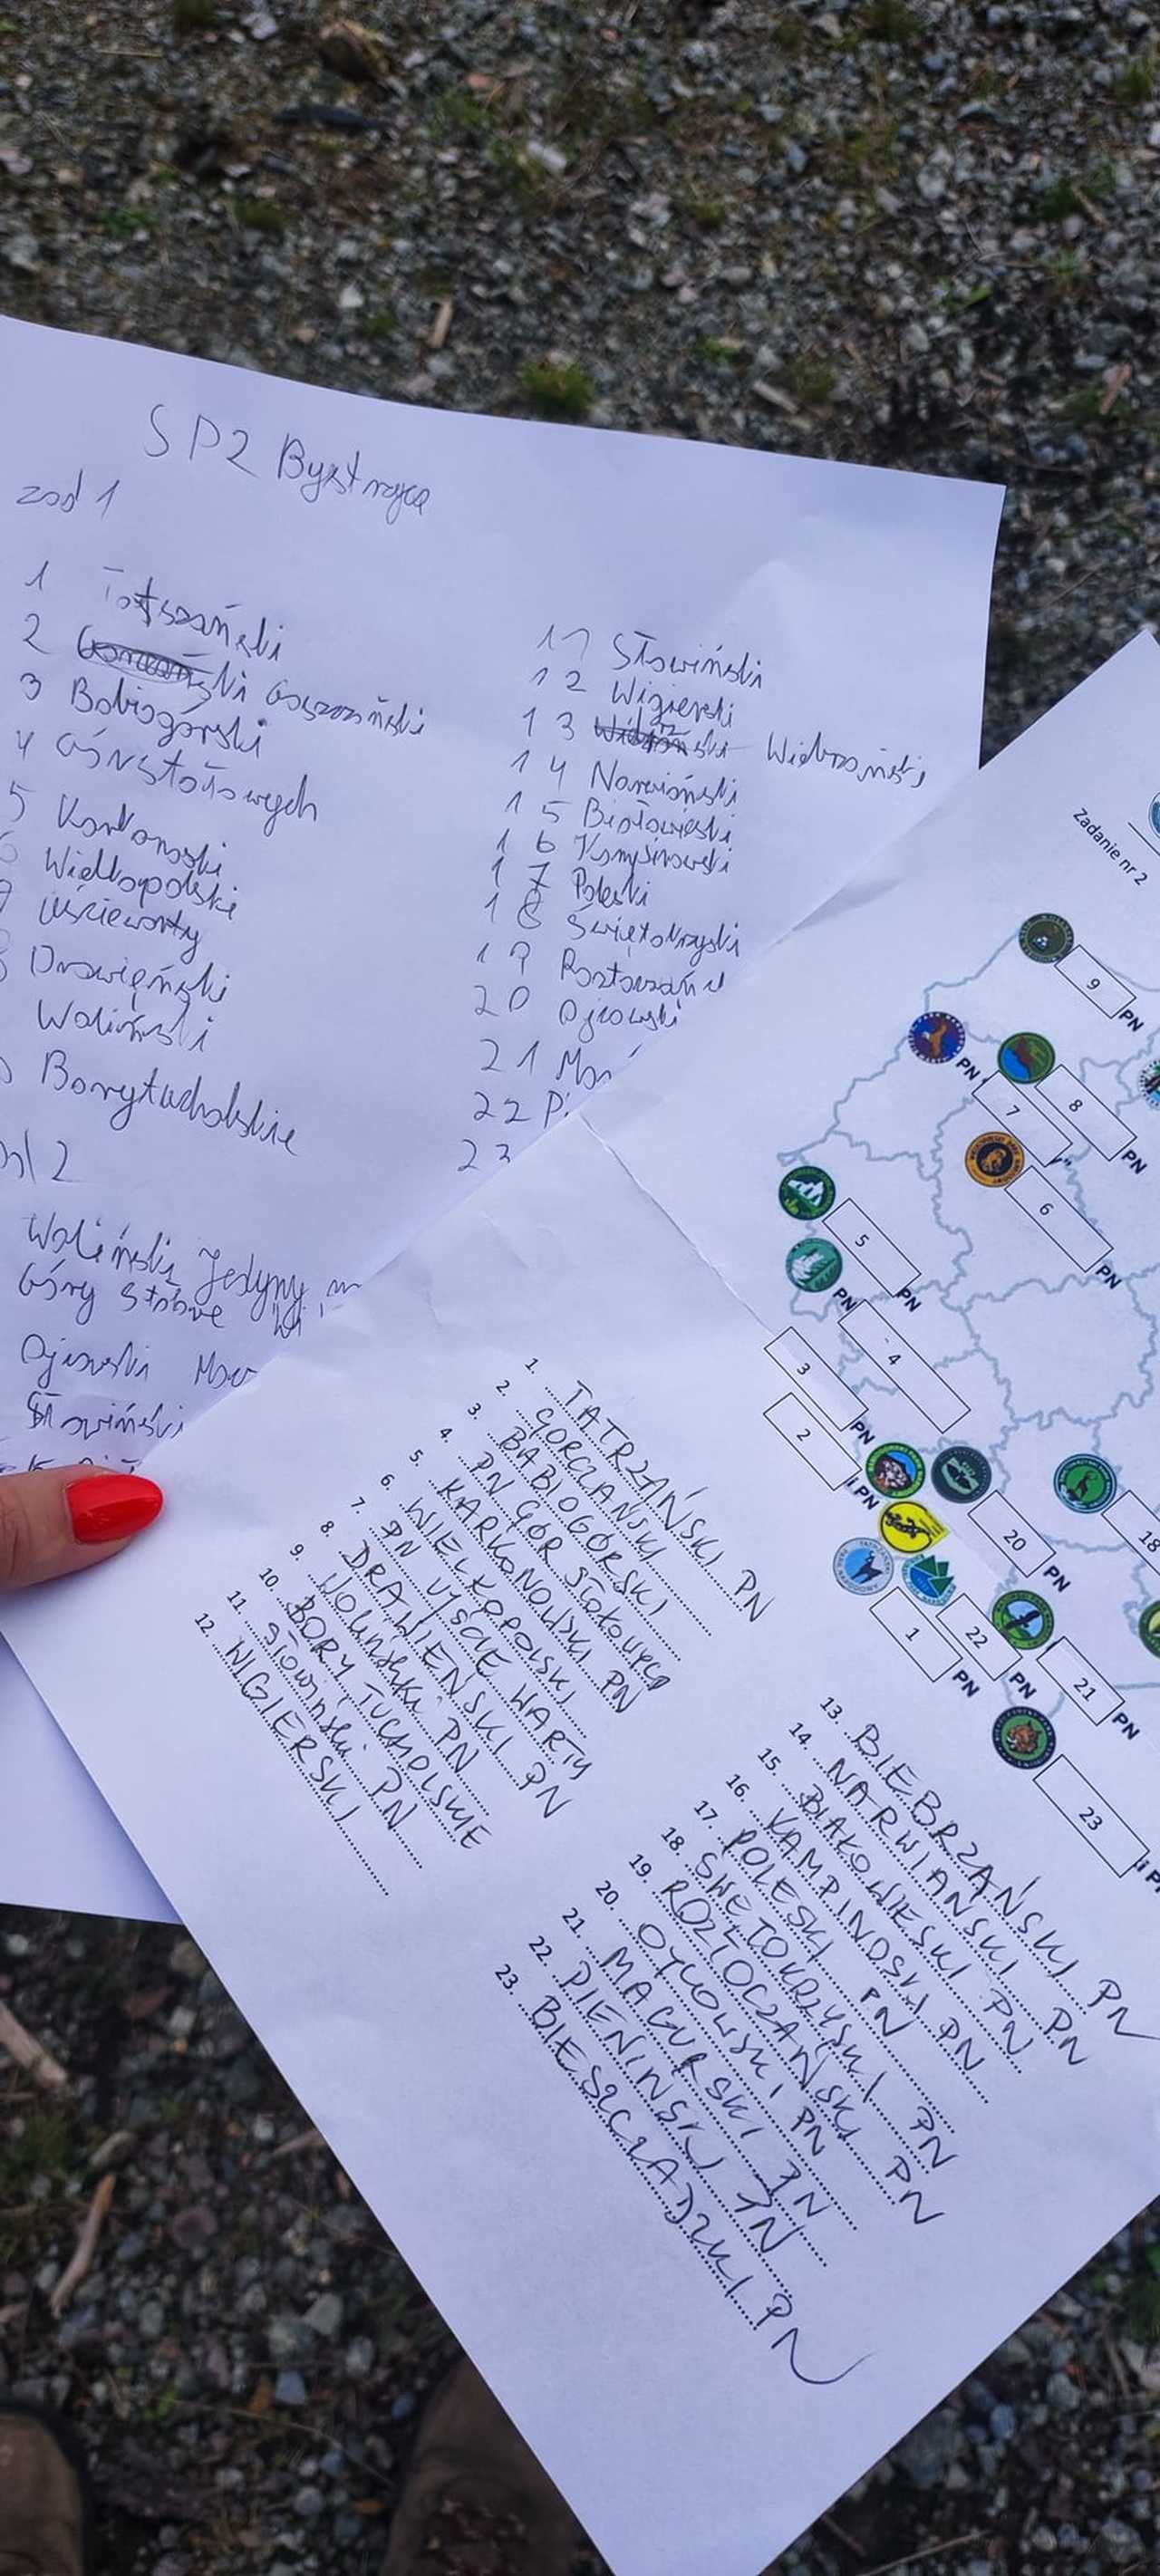 SP2 Bystrzyca
zad 1
1 Tatszański
2 Goszczański
3 Babiogórski
4 GórStołowych
5 Karkonoski
Wielkopolski
Uściewarty
Drawięński
Woliński
Borytucholskie
2
Woliński Jedyny
Góry Stołowe
Ojcowski
Słowiński
11 Słowiński
12 Wigierski
13 Wiebrzański
14 Narwiański
15 Białowieski
16 Kampinowski
17 Poleski
18 Świętokrzyski
19 Roztoczański
20 Ojcowski
21
22
23
Zadanie nr 2
9 PN
PN
7
8 PN
6 PN
5 PN
PN
4
3 PN
2 i PN
20 PN
18
1 PN
22 PN
21 PN
23
1. TATRZAŃSKI PN
2. GORCZAŃSKI
3. BABIOGÓRSKI
4. PN GÓR Stołowych
5. KARKONOWSKI PN
6. WIELKOPOLSKI
7. PN UJŚCIE WARTY
8. DRAWIEŃSKI PN
9. Woliński PN
10. BORY TUCHOLSKIE
11. Słowiński PN
12. WIGIERSKI
13. BIEBRZAŃSKI PN
14. NARWIAŃSKI PN
15. BIAŁOWIESKI PN
16. KAMPINOSKI PN
17. POLESKI PN
18. ŚWIĘTOKRZYSKI PN
19. ROZTOCZAŃSKI PN
20. OJCOWSKI PN
21. MAGURSKI PN
22. PIENINSKI PN
23. BIESZCZADZKI PN